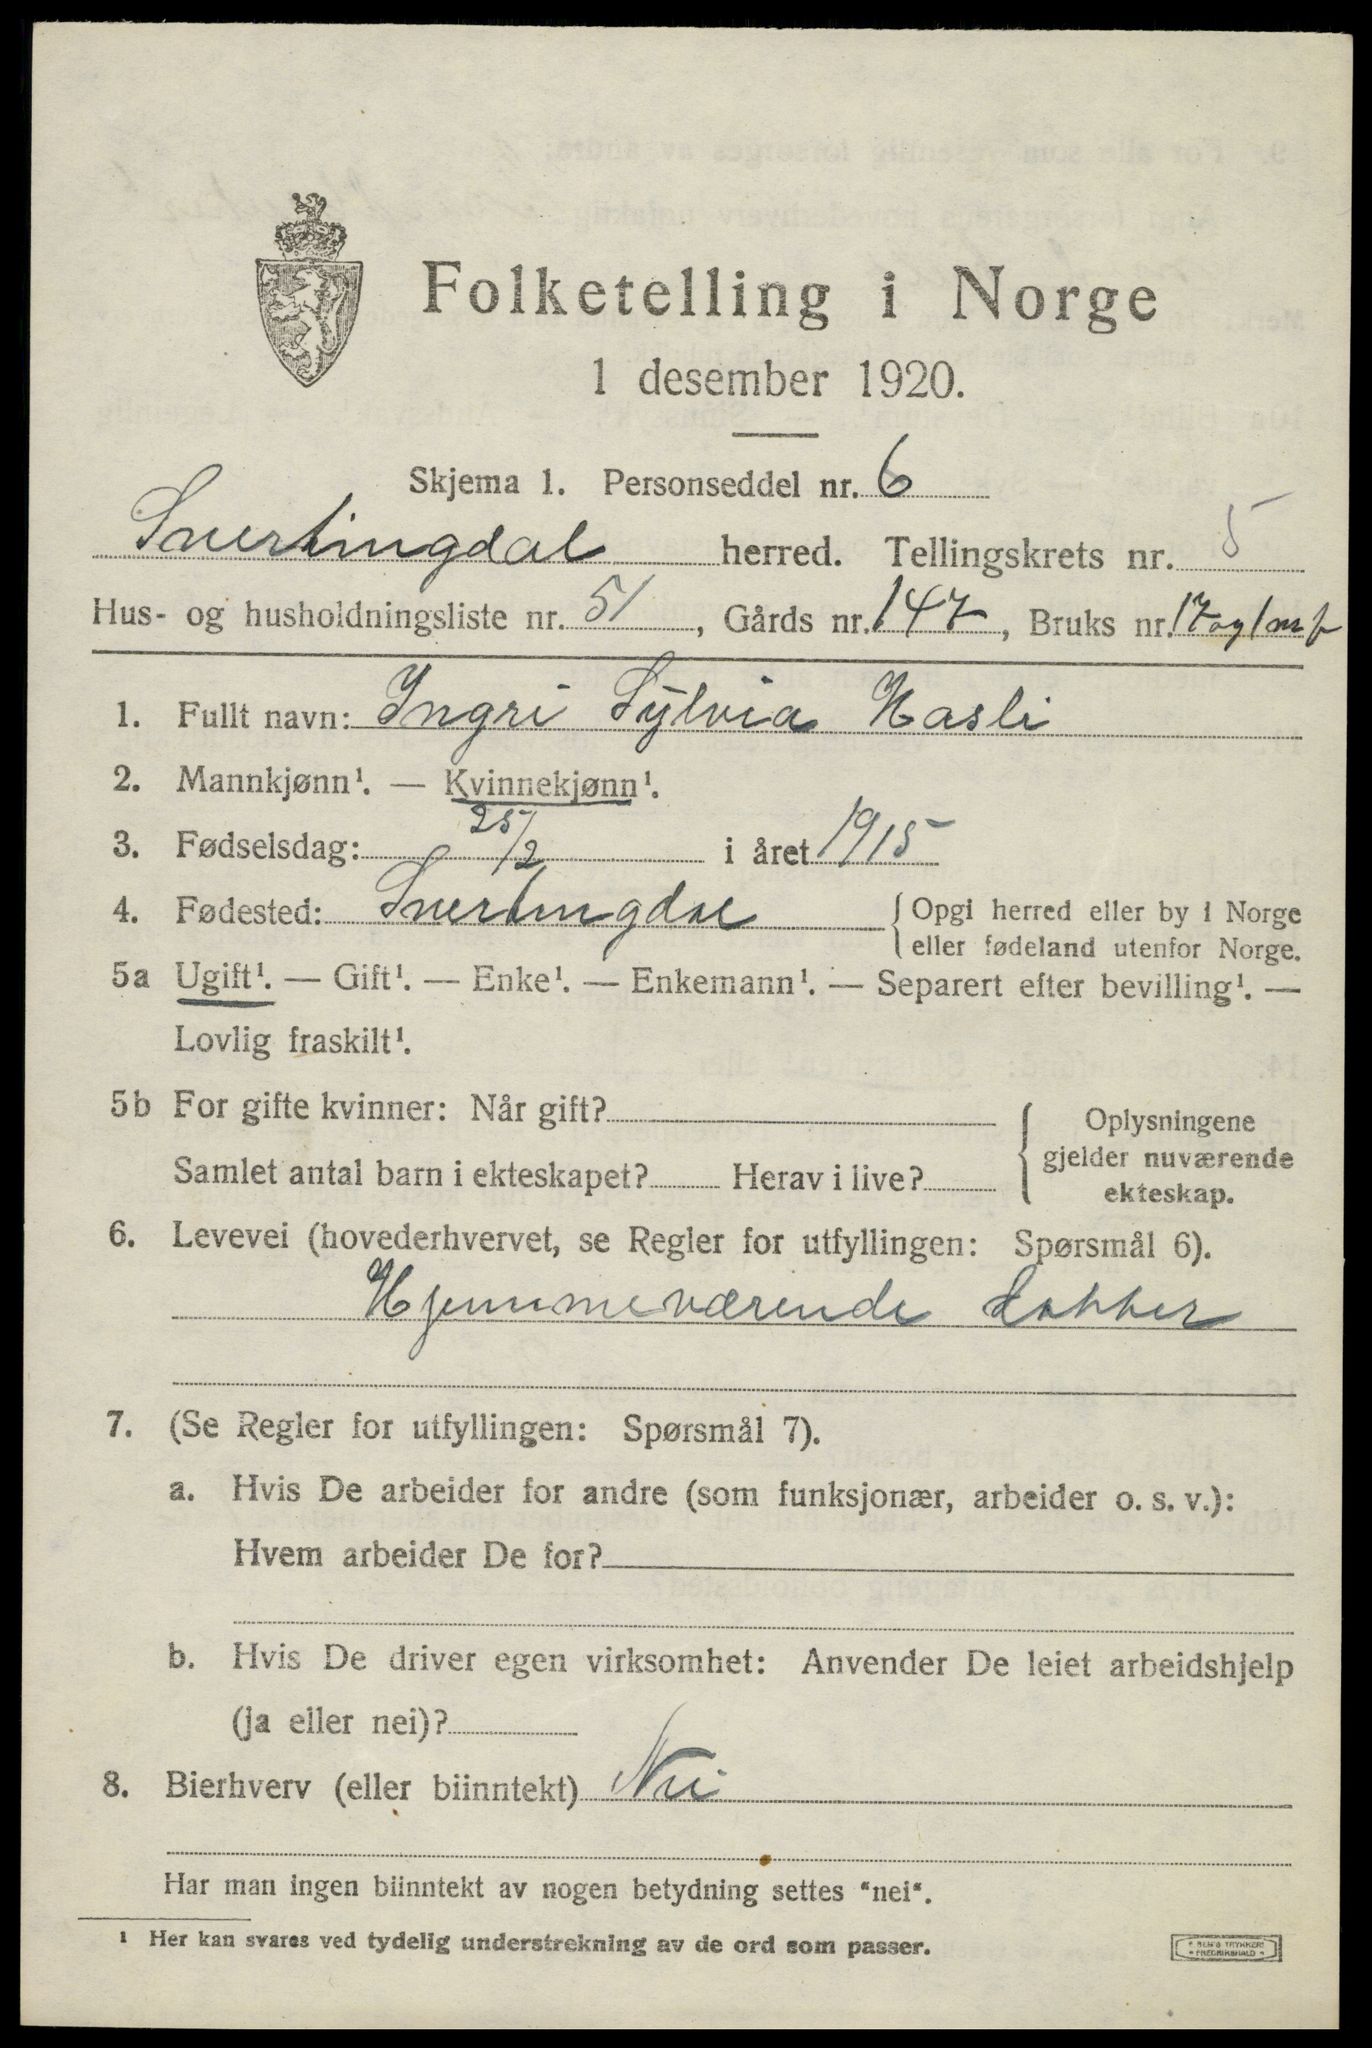 Folketelling i Norge
1 desember 1920.
Skjema 1. Personseddel nr. 6
Snertingdal herred. Tellingskrets nr. 5
Hus- og husholdningsliste nr. 51, Gårds nr. 147, Bruks nr. 17 og 1 m f
1. Fullt navn: Ingri Sylvia Hasli
2. Mannkjønn¹. — Kvinnekjønn¹.
3. Fødselsdag: 25/2 i året 1915
4. Fødested: Snertingdal { Opgi herred eller by i Norge
eller fødeland utenfor Norge.
5a Ugift¹. — Gift¹. — Enke¹. — Enkemann¹. — Separert efter bevilling¹. —
Lovlig fraskilt¹.
5b For gifte kvinner: Når gift? { Oplysningene
gjelder nuværende
Samlet antal barn i ekteskapet? Herav i live?
ekteskap.
6. Levevei (hovederhvervet, se Regler for utfyllingen: Spørsmål 6).
Hjemmeværende
7. (Se Regler for utfyllingen: Spørsmål 7).
a. Hvis De arbeider for andre (som funksjonær, arbeider o. s. v.):
Hvem arbeider De for?
b. Hvis De driver egen virksomhet: Anvender De leiet arbeidshjelp
(ja eller nei)?
8. Bierhverv (eller biinntekt) Nei
Har man ingen biinntekt av nogen betydning settes "nei".
¹ Her kan svares ved tydelig understrekning av de ord som passer.